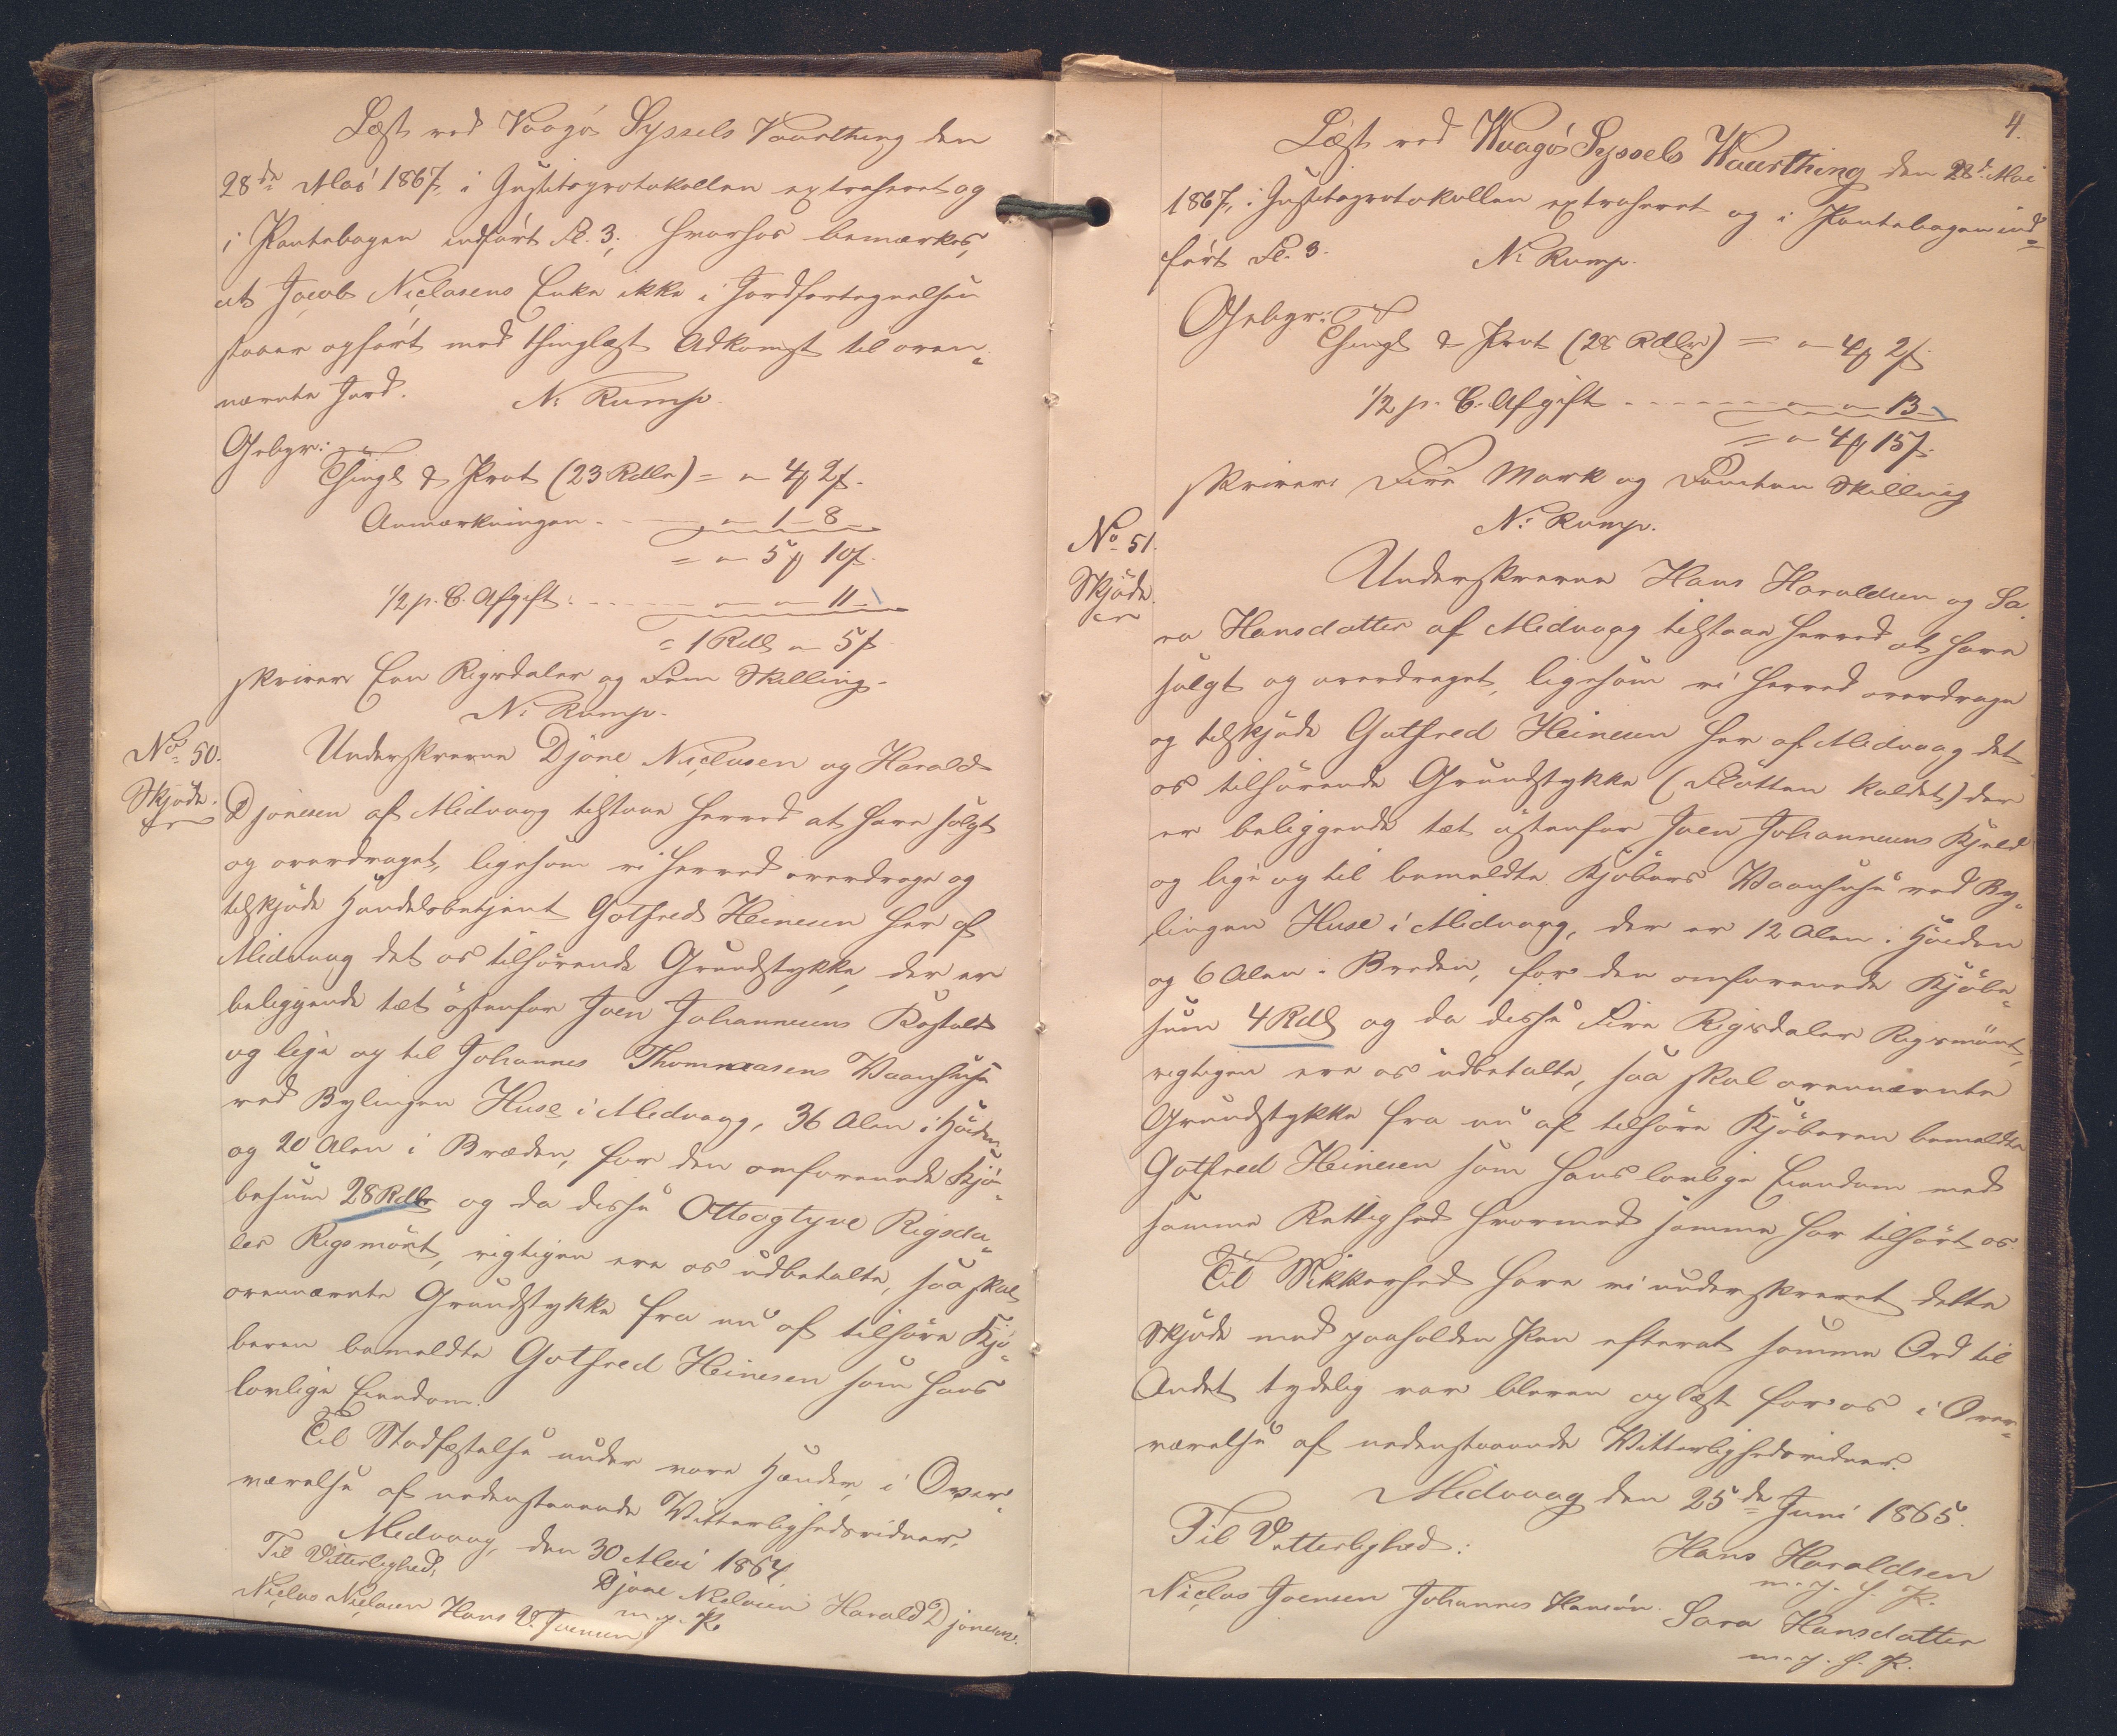 Læst ved Vaagø Syssels Vaarthing den
28de Mai 1867, i Justitsprotokollen extraheret og
i Pantebogen indført Fl. 3; hvorhos bemærkes,
at Jacob Niclasens Enke ikke i Jordfortegnelsen
staaer opført med thinglæst Adkomst til oven„
nævnte Jord. N. Rump.
Gebyr:
Thingl & Prot (23 Rdlr) = " 4 ꝟ 2 ß.
Anmærkningen - - " 1 - 8 -
= " 5 ꝟ 10 ß.
1/2 p. C. Afgift. - - - " " 11 -
= 1 Rdl " 5 ß
skriver Een Rigsdaler og Fem Skilling.
N. Rump.
No 50.
Skjøde.
Underskrevne Djone Niclasen og Harald
Djonesen af Midvaag tilstaae herved at have solgt
og overdraget, ligesom vi herved overdrage og
tilskjøde Handelsbetjent Gotfred Heinesen her af
Midvaag det os tilhørende Grundstykke, der er
beliggende tæt østenfor Joen Johannesens Bostæld
og lige op til Johannes Thommasens Vaanhuse
ved Bylingen Huse i Midvaag, 36 Alen i Høiden
og 20 Alen i Bræden, for den omforenede Kjø„
besum 28 Rdlr og da disse Otteogtyve Rigsda„
ler Rigsmønt, rigtigen ere os udbetalte, saa skal
ovennævnte Grundstykke fra nu af tilhøre Kjø„
beren bemeldte Gotfred Heinesen som hans
lovlige Eiendom.
Til Stadfæstelse under vore Hænder, i Over„
værelse af nedenstaaende Vitterlighedsvidner.
Midvaag, den 30 Mai 1864
Til Vitterlighed,
Djone Niclasen Harald Djonesen.
m. p. P.
Niclas Niclasen Hans D. Joensen
4.
Læst ved Waagø Syssels Waarthing den 28d Mai
1867, i Justitsprotokollen extraheret og i Pantebogen ind„
ført Fl. 3. N. Rump.
Gebyr:
Thingl & Prot (28 Rdlr) = " 4 ꝟ 2 ß.
1/2 p. C. Afgift - - - - " " 13 -
= " 4 ꝟ 15 ß.
skriver Fire Mark og Femten Skilling
N. Rump.
No 51.
Skjøde.
Underskrevne Hans Haraldsen og Sa
ra Hansdatter af Midvaag tilstaae herved at have
solgt og overdraget, ligesom vi herved overdrage
og tilskjøde Gotfred Heinesen her af Midvaag det
os tilhørende Grundstykke (Fløtten kaldet) der
er beliggende tæt østenfor Joen Johannesens Kjeld
og lige op til bemeldte Kjøbers Vaanhuse ved By„
lingen Huse i Midvaag, der er 12 Alen i Høiden
og 6 Alen i Breden, for den omforenede Kjøbe„
sum 4 Rdl og da disse Fire Rigsdaler Rigsmønt,
rigtigen ere os udbetalte, saa skal ovennævnte
Grundstykke fra nu af tilhøre Kjøberen bemeldte
Gotfred Heinesen som hans lovlige Eiendom med
samme Rettighed hvormed samme har tilhørt os.
Til Sikkerhed have vi underskrevet dette
Skjøde med paaholden Pen efterat samme Ord til
Andet tydelig var bleven oplæst for os i Over„
værelse af nedenstaaende Vitterlighedsvidner.
Midvaag den 25de Juni 1865.
Til Vitterlighed:
Hans Haraldsen
m. p. h. P.
Niclas Joensen Johannes Hansön. Sara Hansdatter
m. p. h. P.